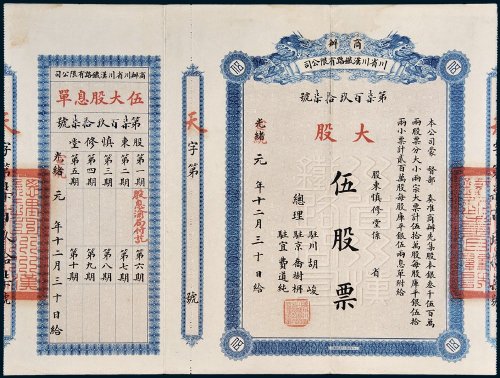 商辦
川省川漢鐵路有限公司
第柒百玖拾柒號
本公司蒙 督部 奏准商辦先集股本銀叁千伍百萬
兩股票分大小兩宗大票計伍拾萬股每股庫平銀伍拾
兩小票計貳百萬股每股庫平銀伍兩息單附給
大股
股東慎修堂係 省
伍股票
總理
駐川 胡峻
駐京 喬樹枏
駐宜 費道純
光緒元年十二月三十日給
天字第 號
商辦川省川漢鐵路有限公司
伍大股息單
第柒百玖拾柒號
股東慎修堂
第一期
第二期
第三期
第四期
第五期
第六期
第七期
第八期
第九期
第十期
光緒元年十二月三十日給
天字第